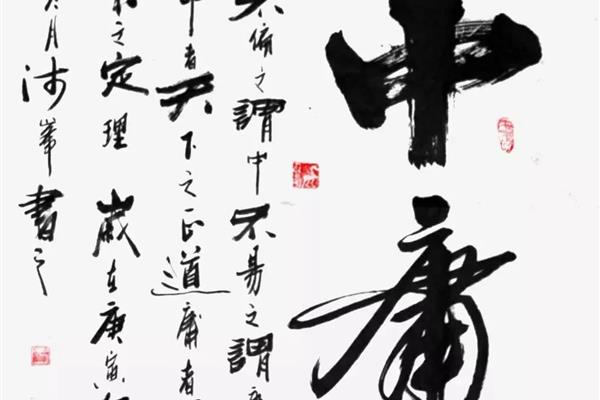 中庸
不偏之謂中不易之謂庸
中者天下之正道庸者
之定理 歲在庚寅
月沛峯書之